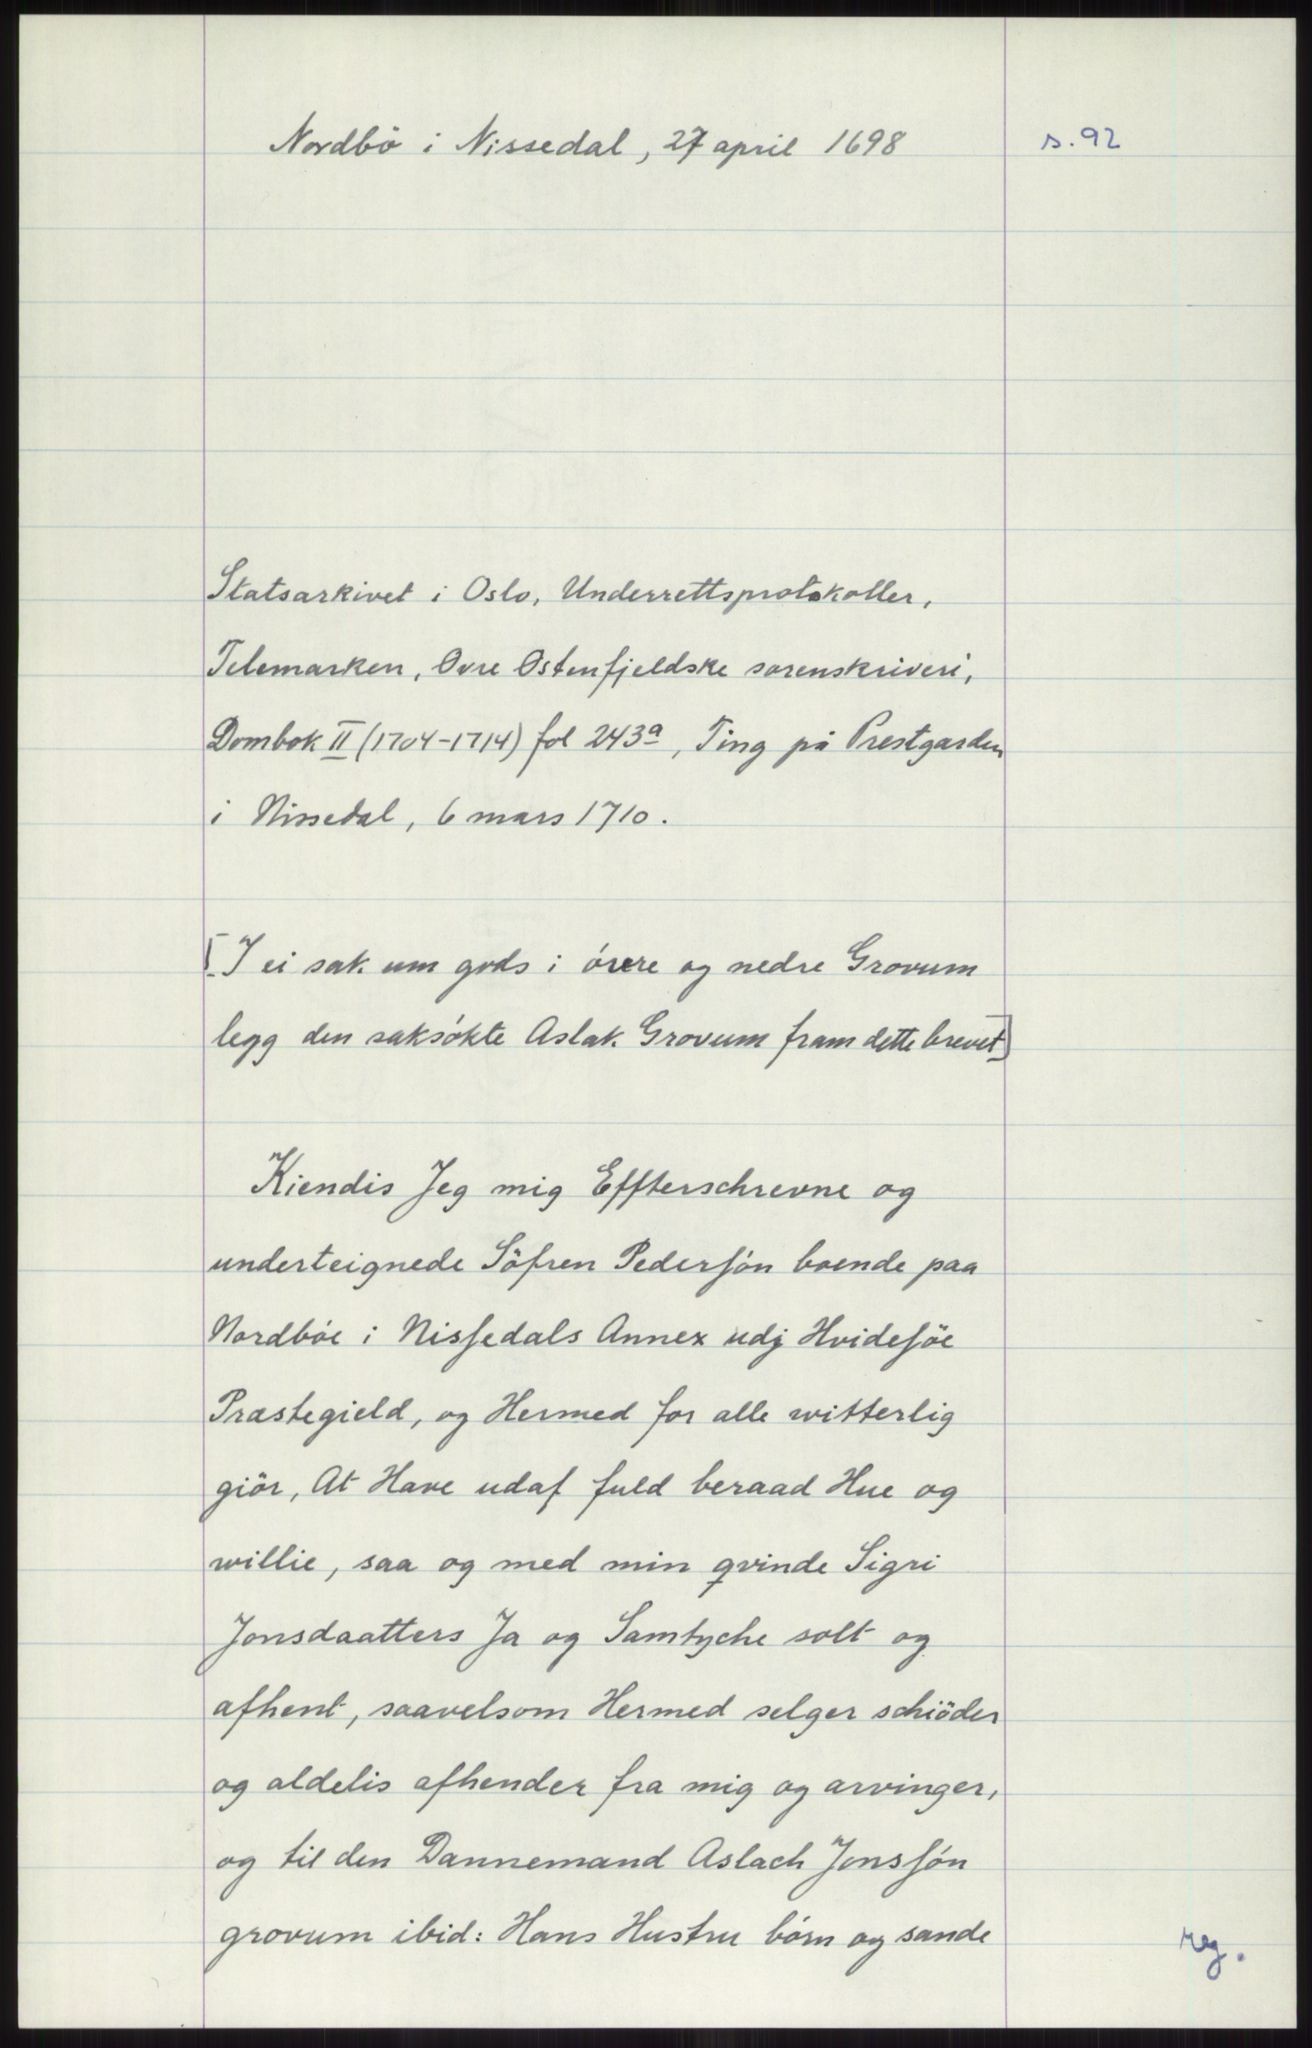 Nordbö i Nissedal, 27 april 1698 s. 92
Statsarkivet i Oslo, Underrettsprotokoller,
Telemarken, Øvre Østenfjeldske sorenskriveri,
Dombok II (1704-1714) fol 243a, Ting på Prestgarden
i Nissedal, 6 mars 1710.
[I ei sak um gods i óvre og nedre Grovum
legg den saksókte Aslak Grovum fram dette brevet]
Kiendis Jeg mig Effterschrevne og
underteignede Söfren Pedersón boende paa
Nordbóe i Nissedals Annex udj Hvidesöe
Præstegield, og Hermed for alle witterlig
giör, At Have udaf fuld beraad Hue og
willie, saa og med min qvinde Sigri
Jonsdaatters Ja og Samtyche solt og
afhent, saavelsom Hermed selger schiöder
og aldelis afhender fra mig og arvinger,
og til den Dannemand Aslach Jonssón
grovum ibid: Hans Hustru bórn og sande
reg.